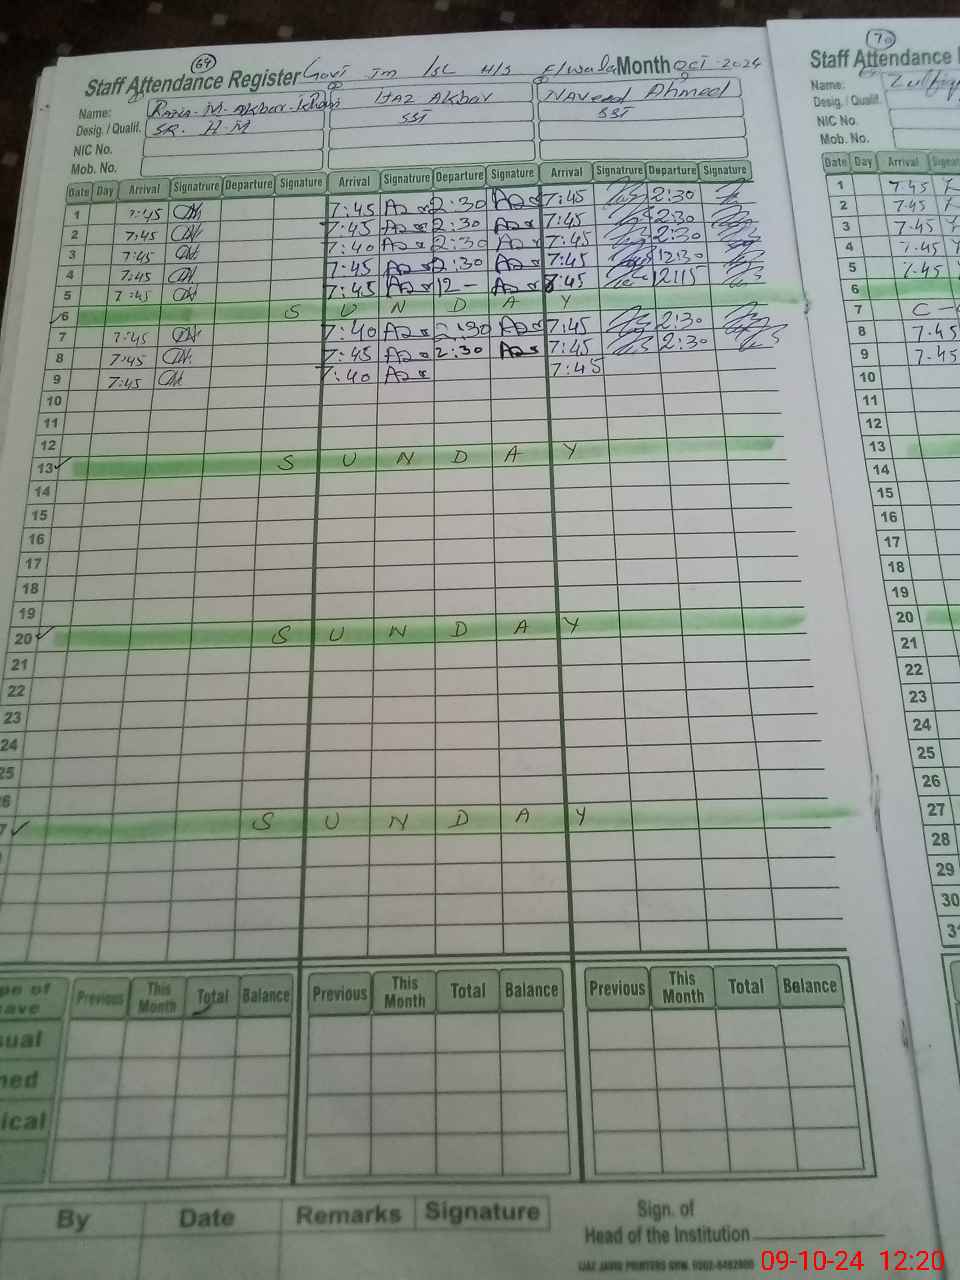 64
Staff Attendance Register Govt Jm /sc H/S F/wala Month Oct-2024
Name: Raja M. Akbar Khan Ijaz Akbar Naveed Ahmed
Desig. / Qualif. SR. H.M SST SST
NIC No.
Mob. No.
Date Day Arrival Signatrure Departure Signature Arrival Signatrure Departure Signature Arrival Signatrure Departure Signature
1 7:45 7:45 2:30 7:45 2:30
2 7:45 7:45 2:30 7:45 2:30
3 7:45 7:40 2:30 7:45 2:30
4 7:45 7:45 2:30 7:45 12:30
5 7:45 7:45 12- 7:45 12:15
6 S U N D A Y
7 7:45 7:40 2:30 7:45 2:30
8 7:45 7:45 2:30 7:45 2:30
9 7:45 7:40 7:45
10
11
12
13 S U N D A Y
14
15
16
17
18
19
20 S U N D A Y
21
22
23
24
25
6
7 S U N D A Y
pe of
ave
Previous This Month Total Balance Previous This Month Total Balance Previous This Month Total Balance
sual
ned
ical
By Date Remarks Signature
Sign. of
Head of the Institution
70
Staff Attendance
Name:
Desig. / Qualif.
NIC No.
Mob. No.
Date Day Arrival
1 7:45
2 7:45
3 7:45
4 7:45
5 7:45
6
7 C
8 7:45
9 7:45
10
11
12
13
14
15
16
17
18
19
20
21
22
23
24
25
26
27
28
29
30
09-10-24 12:20